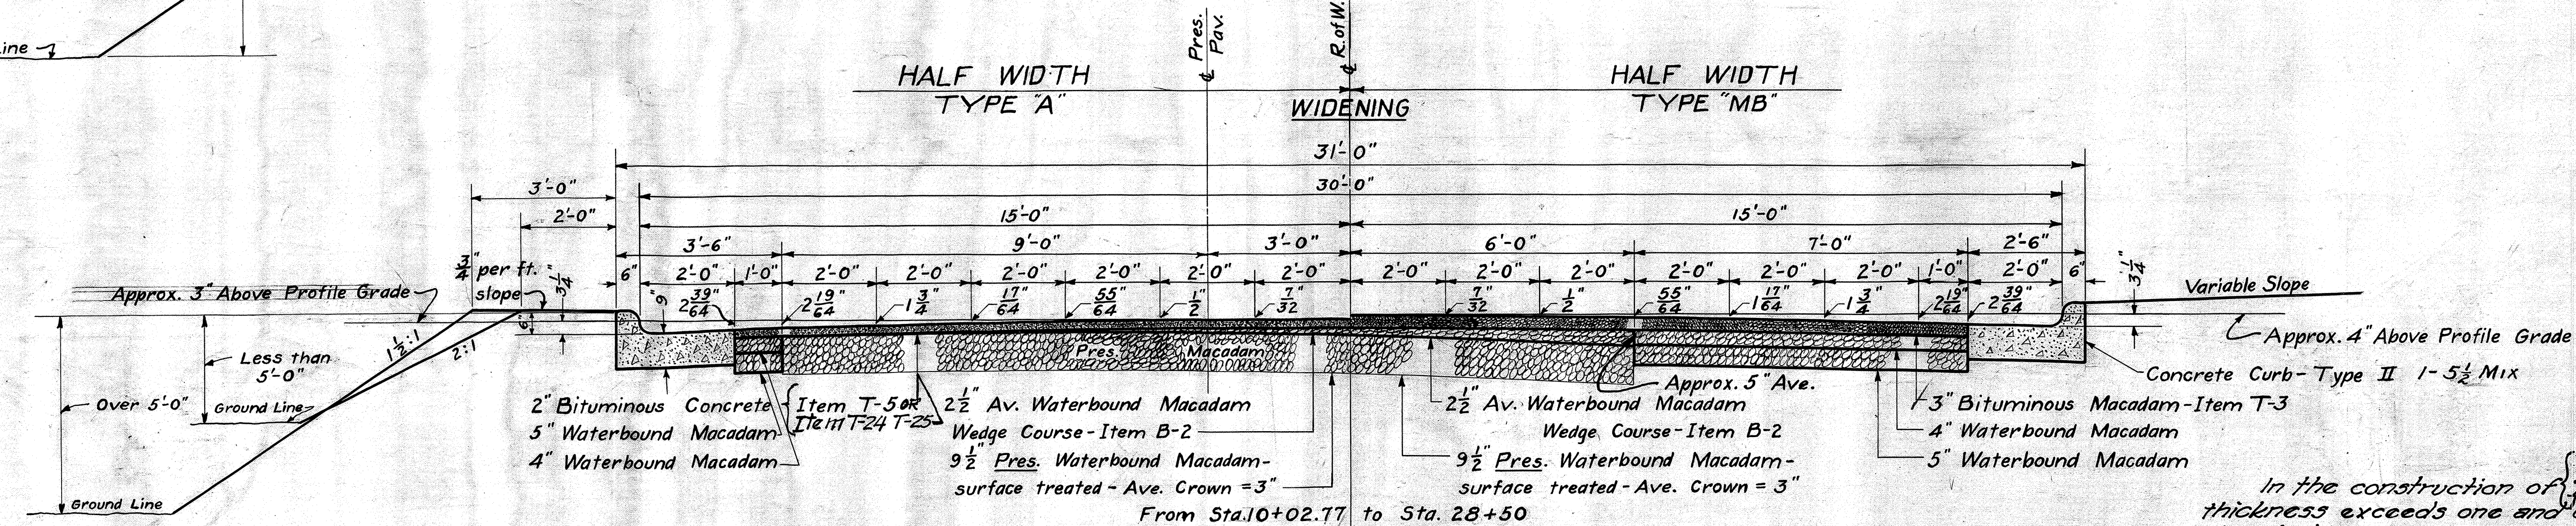 ine
HALF WIDTH
TYPE "A"
℄ Pres. Pav.
℄ R.of W.
WIDENING
HALF WIDTH
TYPE "MB"
31'-0"
30'-0"
3'-0"
2'-0"
15'-0"
15'-0"
3'-6" 9'-0" 3'-0" 6'-0" 7'-0" 2'-6"
3/4" per ft.
slope
3 1/4"
6" 2'-0" 1'-0" 2'-0" 2'-0" 2'-0" 2'-0" 2'-0" 2'-0" 2'-0" 2'-0" 2'-0" 2'-0" 2'-0" 2'-0" 1'-0" 2'-0" 6"
3 1/4"
9"
6"
2 39/64" 2 19/64" 1 3/4" 17/64" 55/64" 1/2" 7/32" 7/32" 1/2" 55/64" 1 17/64" 1 3/4" 2 19/64" 2 39/64"
Approx. 3" Above Profile Grade
Variable Slope
Approx. 4" Above Profile Grade
1 1/2:1
2:1
Less than
5'-0"
Over 5'-0"
Ground Line
Ground Line
Pres. Macadam
Approx. 5" Ave.
Concrete Curb - Type II 1-5 1/2 Mix
2" Bituminous Concrete { Item T-5 OR
Item T-24 T-25
5" Waterbound Macadam
4" Waterbound Macadam
2 1/2" Av. Waterbound Macadam
Wedge Course - Item B-2
9 1/2" Pres. Waterbound Macadam-
surface treated - Ave. Crown = 3"
2 1/2" Av. Waterbound Macadam
Wedge Course - Item B-2
9 1/2" Pres. Waterbound Macadam-
surface treated - Ave. Crown = 3"
3" Bituminous Macadam - Item T-3
4" Waterbound Macadam
5" Waterbound Macadam
From Sta. 10+02.77 to Sta. 28+50
In the construction of
thickness exceeds one and